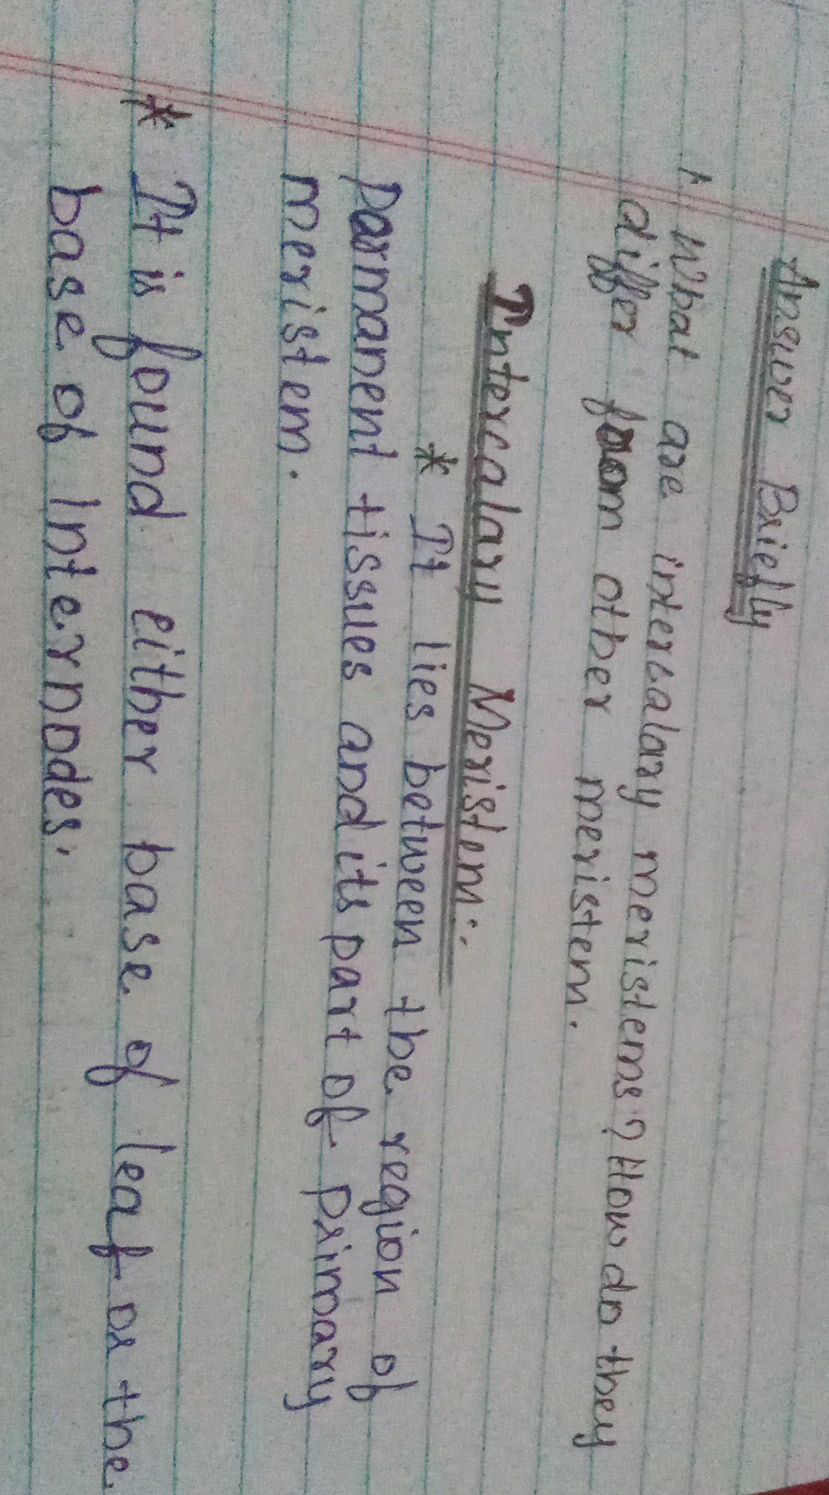 Answer Briefly
1. What are intercalary meristems? How do they
differ from other meristem.
Intercalary Meristem:-
* It lies between the region of
Parmanent tissues and its part of primary
meristem.
* It is found either base of leaf or the
base of Internodes.